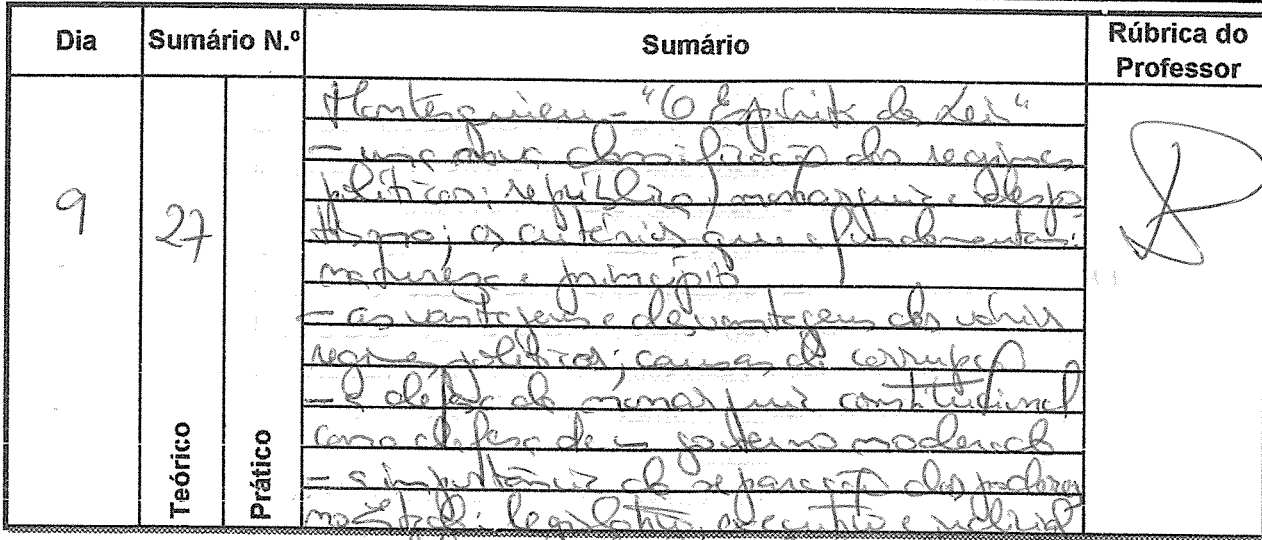 Dia
Sumário N.º
Sumário
Rúbrica do
Professor
9
27
Teórico
Prático
Montesquieu - "O Espírito das Leis"
- uma nova classificação dos regimes
políticos: república, monarquia e despo
tismo; os critérios que a fundamentam:
natureza e princípio
- as vantagens e desvantagens dos vários
regimes políticos; causas da corrupção
- a defesa da monarquia constitucional
como defesa de um governo moderado
- a importância da separação dos poderes
no Estado: legislativo, executivo e judicial